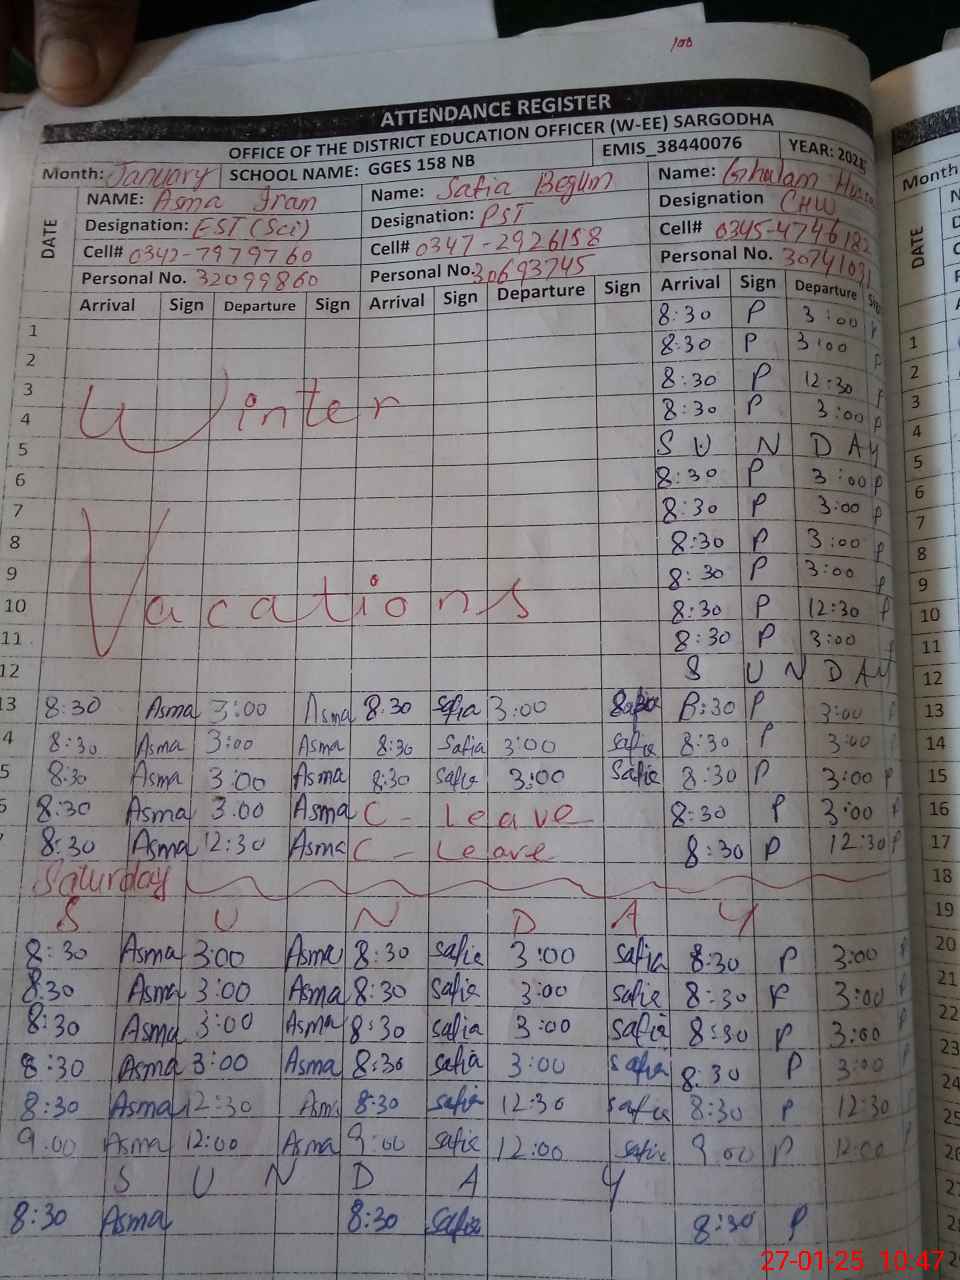 100
ATTENDANCE REGISTER
OFFICE OF THE DISTRICT EDUCATION OFFICER (W-EE) SARGODHA
Month: January SCHOOL NAME: GGES 158 NB EMIS_38440076 YEAR: 2025
DATE NAME: Asma Iram Name: Safia Begum Name: Ghulam
Designation: EST (Sci) Designation: PST Designation CHW
Cell# 0342-7979760 Cell# 0347-2926158 Cell# 0345-4746182
Personal No. 32099860 Personal No. 30693745 Personal No. 30741031
Arrival Sign Departure Sign Arrival Sign Departure Sign Arrival Sign Departure
1 8:30 P 3:00 P
2 8:30 P 3:00 P
3 8:30 P 12:30 P
4 Winter 8:30 P 3:00 P
5 SUNDAY
6 8:30 P 3:00 P
7 8:30 P 3:00 P
8 8:30 P 3:00 P
9 8:30 P 3:00 P
10 Vacations 8:30 P 12:30 P
11 8:30 P 3:00 P
12 SUNDAY
13 8:30 Asma 3:00 Asma 8:30 Safia 3:00 Safia 8:30 P 3:00 P
4 8:30 Asma 3:00 Asma 8:30 Safia 3:00 Safia 8:30 P 3:00
5 8:30 Asma 3:00 Asma 8:30 Safia 3:00 Safia 8:30 P 3:00 P
8:30 Asma 3:00 Asma C - Leave 8:30 P 3:00 P
8:30 Asma 12:30 Asma C - Leave 8:30 P 12:30 P
Saturday
S U N D A Y
8:30 Asma 3:00 Asma 8:30 Safia 3:00 Safia 8:30 P 3:00 P
8:30 Asma 3:00 Asma 8:30 Safia 3:00 Safia 8:30 P 3:00 P
8:30 Asma 3:00 Asma 8:30 Safia 3:00 Safia 8:30 P 3:00 P
8:30 Asma 3:00 Asma 8:30 Safia 3:00 Safia 8:30 P 3:00 P
8:30 Asma 12:30 Asma 8:30 Safia 12:30 Safia 8:30 P 12:30
9:00 Asma 12:00 Asma 9:00 Safia 12:00 Safia 9:00 P 12:00 P
S U N D A Y
8:30 Asma 8:30 Safia 8:30 P
Month
DATE
1
2
3
4
5
6
7
8
9
10
11
12
13
14
15
16
17
18
19
20
21
22
23
24
25
27-01-25 10:47